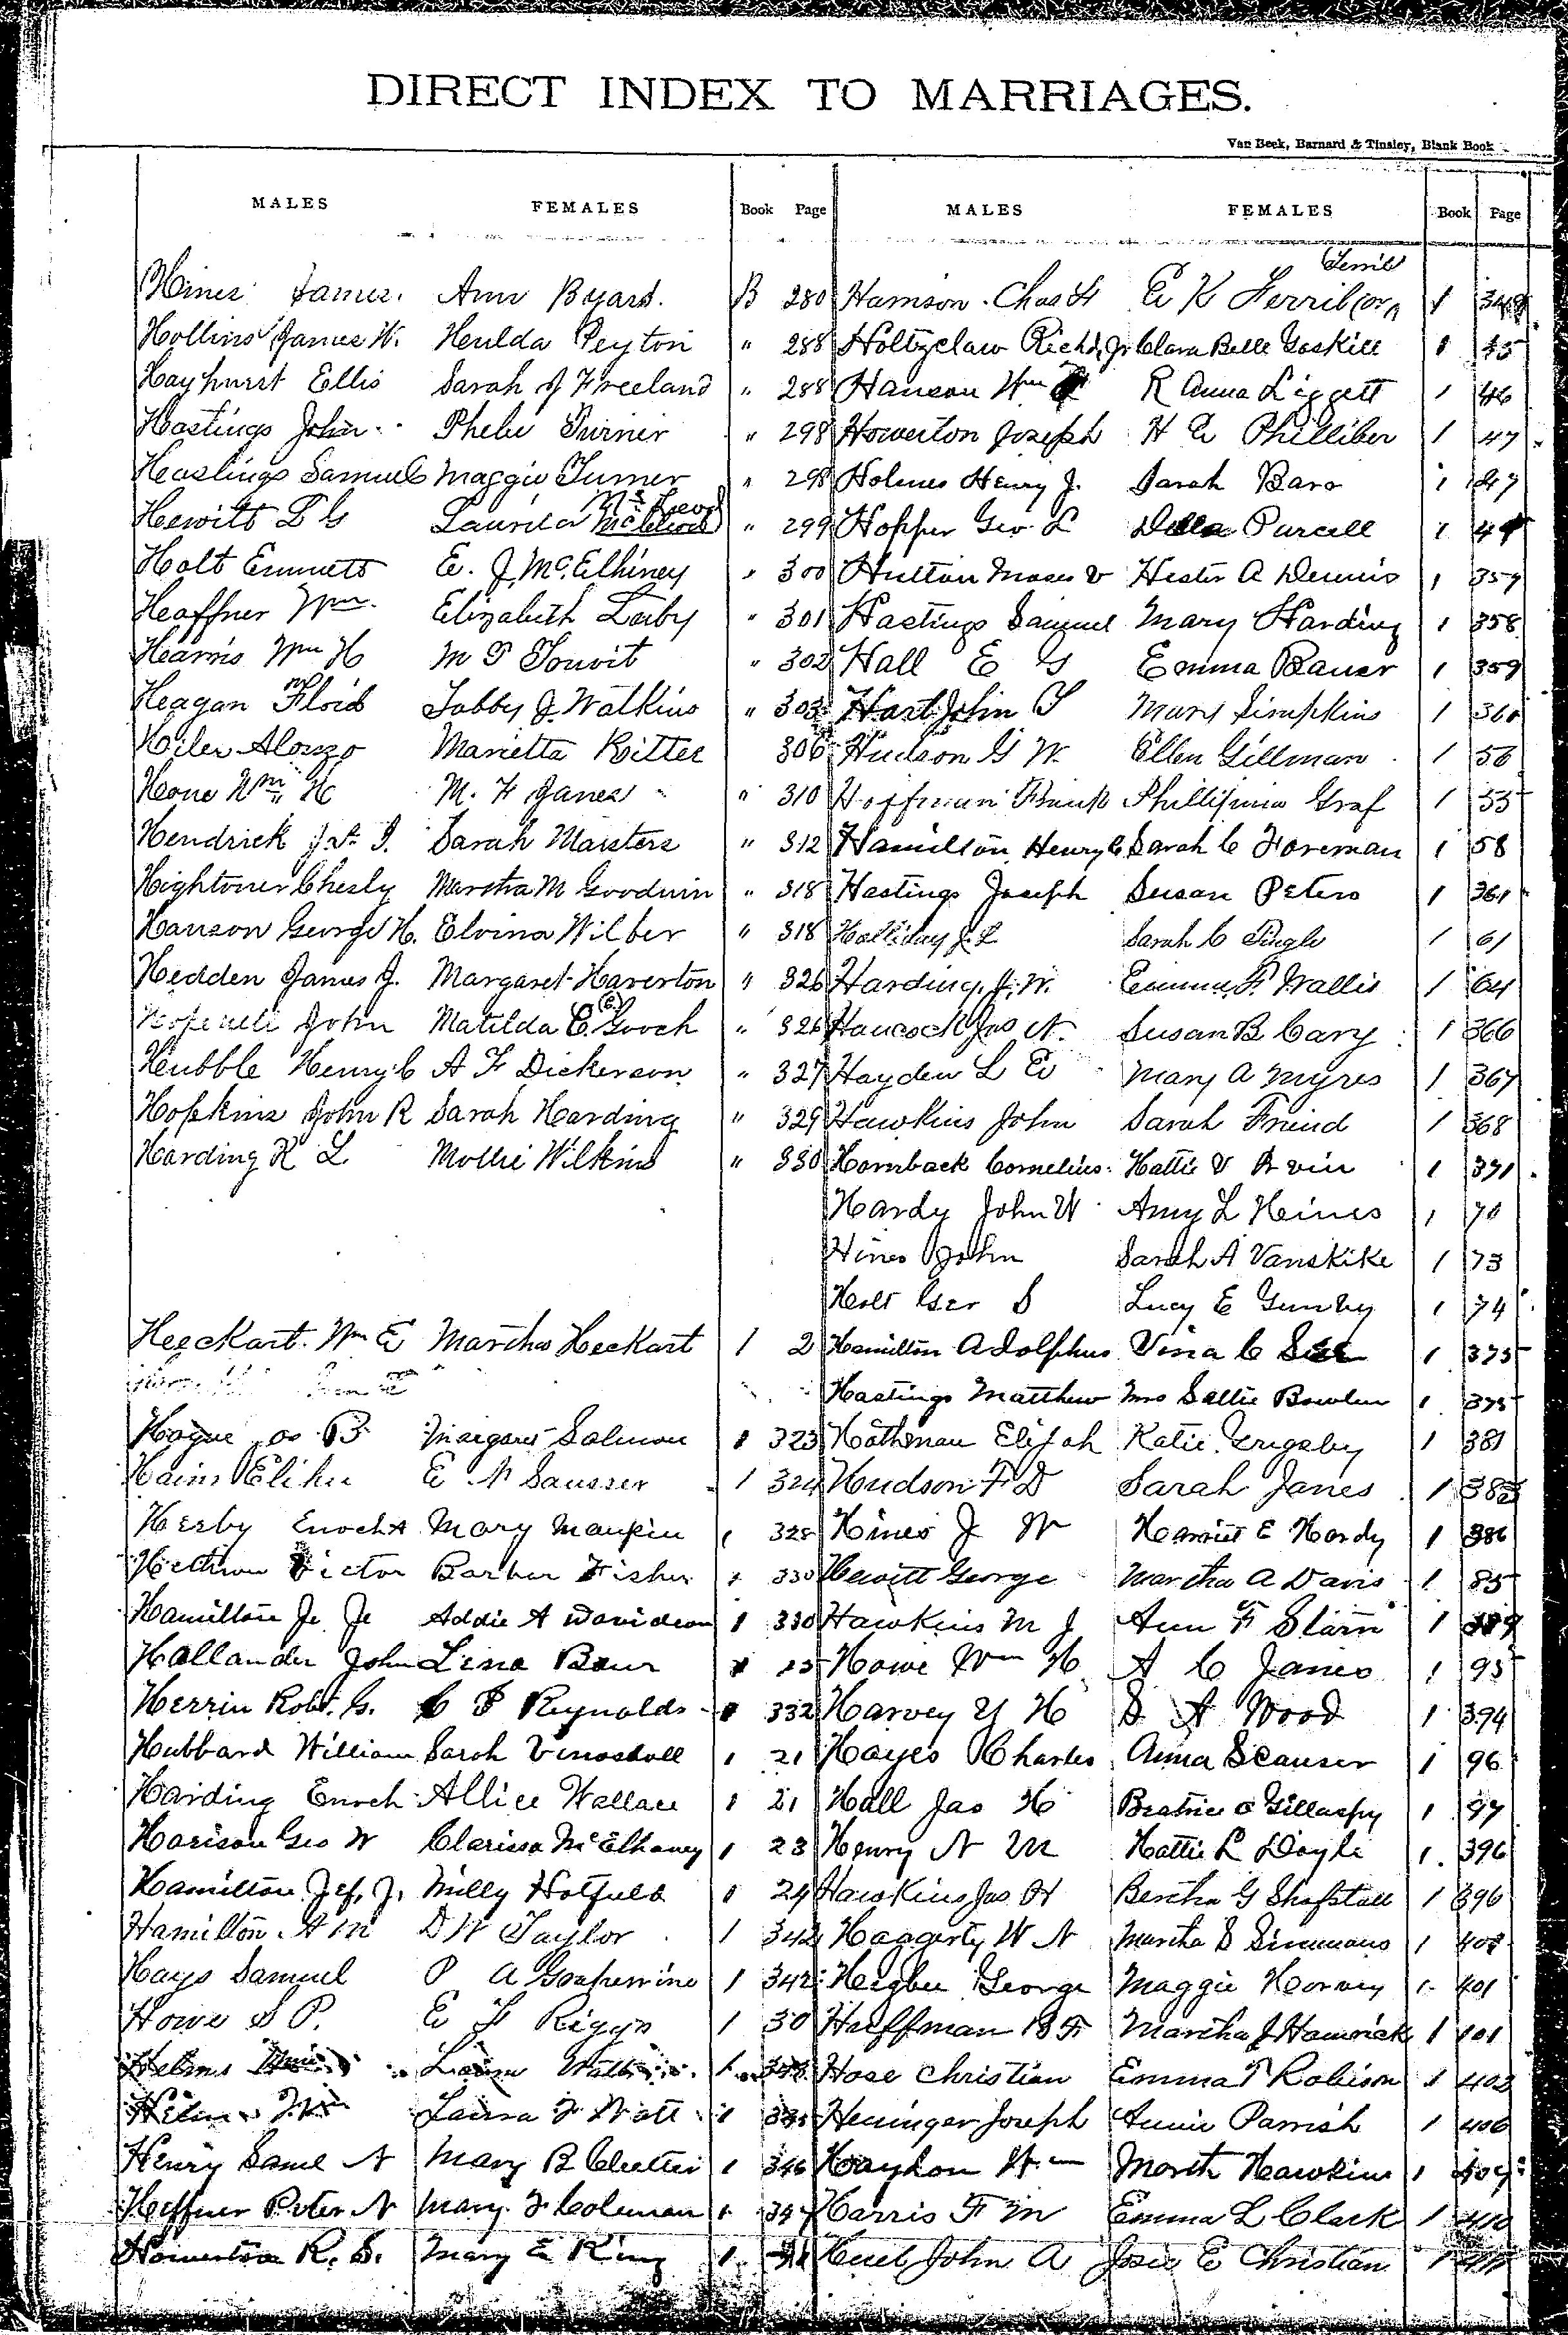 DIRECT INDEX TO MARRIAGES.
Van Beek, Barnard & Tinsley, Blank Book
MALES FEMALES Book Page
Hines James. Ann Byard. B 280
Hollins James W. Hulda Peyton " 288
Hayhurst Ellis Sarah J Freeland " 288
Hastings John Phebe Turner " 298
Hastings Samuel Maggie Turner " 298
Hewitt L G Laurila " 299
Holt Emmett E. J. McElhiney " 300
Heaffner Wm. Elizabeth Laby " 301
Harris Wm H M " 302
Heagan Floid Tabby J. Watkins " 303
Hiler Alonzo Marietta Ritter 306
Hone Wm H M. F Janes " 310
Hendrick Sarah Maisters " 312
Hightoner Chesly Martha M Goodwin " 318
Hanson George H. Elvina Wilber " 318
Hedden James J. Margaret Haverton " 326
John Matilda C. Gooch " 326
Hubble Henry C A F Dickerson " 327
Hopkins John R Sarah Harding " 329
Harding K L Mollie Wilkins " 330
Heeckart. Wm E Martha Heckart 1 2
Hague B Margaret Salmon 1 323
Hains Elihu E N Sausser 1 324
Hersby Enoch A Mary Maupin 1 328
Victor Fisher 1 330
Hamilton Addie A Davidson 1 330
Hallander John Lena Baur 1 15
Herrin Robt. G. Reynolds 1 332
Hubbard William Sarah Vinostall 1 21
Harding Enoch Allice Wallace 1 21
Harison Geo W Clarissa McElhaney 1 23
Hamilton Jef. J. Milly Hatfield 1 24
Hamilton A M D W Taylor 1 342
Hays Samuel P A 1 342
Howe S P. E F Riggs 1 30
Helms Laura
Laura F Watt 1
Henry Saml N Mary B 1 346
Heffner Peter N Mary F Coleman 1 347
Howerton R. S. Mary E King 1
MALES FEMALES Book Page
Terril
Harrison Chas H E K Ferril (or 1
Holtzclaw Richd, Jr Clara Belle Gaskill 1 45
Hanson Wm R Anna Liggett 1 46
Howerton Joseph H E Philliber 1 47
Holmes Henry J. Sarah Baro 1 47
Hopper Geo. L Della Purcell 1
Hulton Moses V Hester A Dennis 1 357
Hastings Samuel Mary Harding 1 358
Hall E G Emma Bauer 1 359
Hart John T Mary Simpkins 1 360
Hudson G W. Ellen Gillman 1 56
Hoffman Frank Phillipina Graf 1 55
Hamilton Henry C Sarah C Foreman 1 58
Hastings Joseph Susan Peters 1 361
Halliday J. L Sarah C Pingle 1 61
Harding, J. W. Emma F. Wallis 1 64
Hancock Jas N. Susan B Cary 1 366
Hayden L E Mary A Myres 1 367
Hawkins John Sarah Friend 1 368
Hornback Cornelius Hattie V Arvin 1 371
Hardy John W Amy L Heines 1 70
Hines John Sarah A Vanskike 1 73
Holt Geo S Lucy E Gunby 1 74
Hamilton Adolphus Vina C 1 375
Hastings Matthew Mrs Sallie Bowlin 1 375
Hathman Elijah Katie Grigsby 1 381
Hudson F D Sarah Janes 1 383
Hines J W Harriet E Hardy 1 386
Hewitt George Martha A Davis 1 85
Hawkins M J Ann F Starn 1
Howe Wm H A C Janes 1 95
Harvey Y H S A Wood 1 394
Hayes Charles Anna Scauser 1 96
Hall Jas H Beatrice O Gillaspy 1 97
Henry N M Hattie L Doyle 1 396
Hawkins Jas H Bertha G Shafstall 1 396
Haggerty W N Martha S Simmons 1
Higbee George Maggie Harvey 1 401
Huffman B F Martha J Hamrick 1 101
Hose Christian Emma T Robison 1 403
Heninger Joseph Annie Parrish 1 406
Wm Hawkins 1
Harris F M Emma L Clark 1
John A Josie E Christian 1